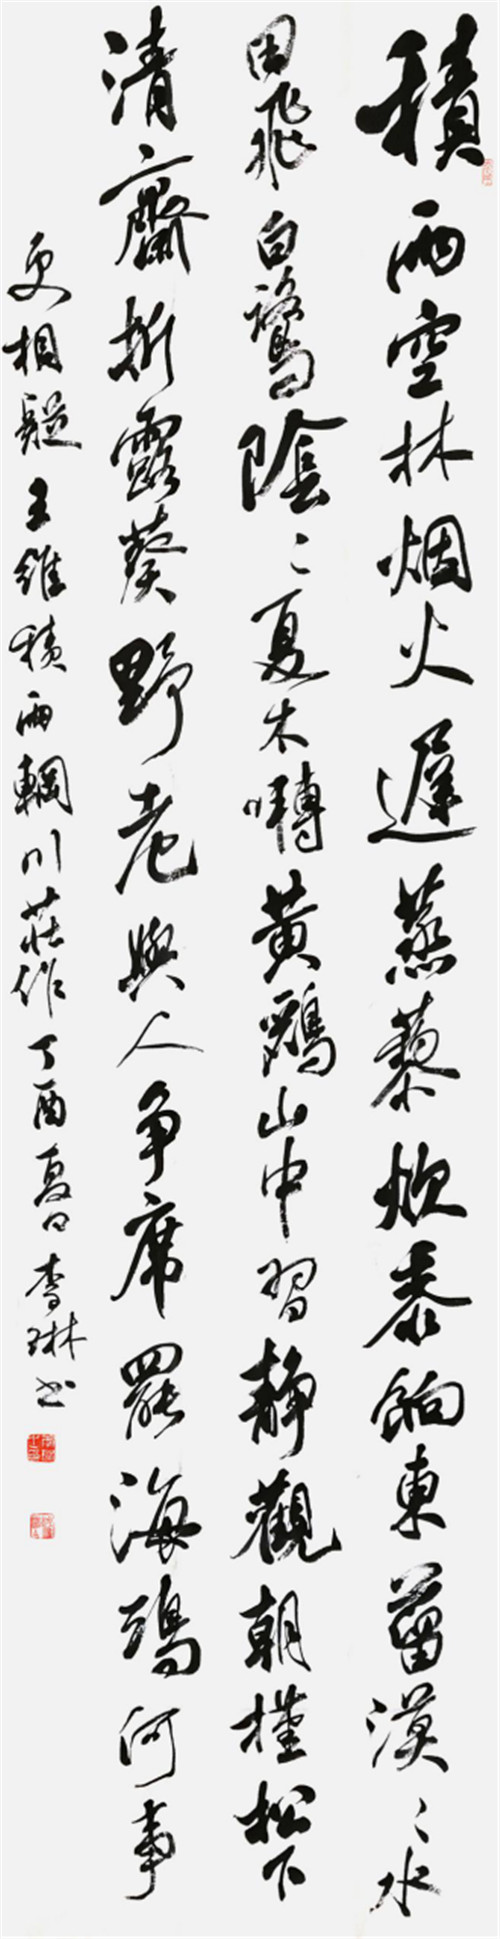 積雨空林烟火遲蒸藜炊黍餉東菑漠〻水
田飛白鷺陰〻夏木囀黃鸝山中習靜觀朝槿松下
清齋折露葵野老與人争席罷海鷗何事
更相疑王維積雨輞川莊作丁酉夏日李琳书